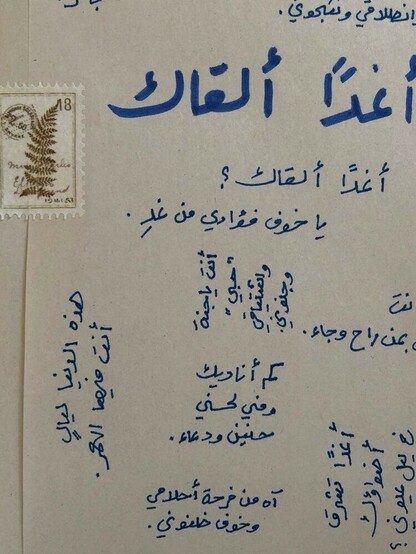 وانطلاقي وشجوني.
أغدًا ألقاك
18
أغدًا ألقاك ؟
يا خوف فؤادي من غدٍ .
أنت يا جنة
"حبي"
واشتياقي
وجنوني.
بمن راح وجاء.
هذه الدنيا ليالٍ
أنت فيها العمر.
كم أناديك
وفي لحني
حنين ودعاء.
أغدًا تشرق
أضواؤك
ليل عيوني ؟
آه من فرحة أحلامي
وخوف ظنوني .